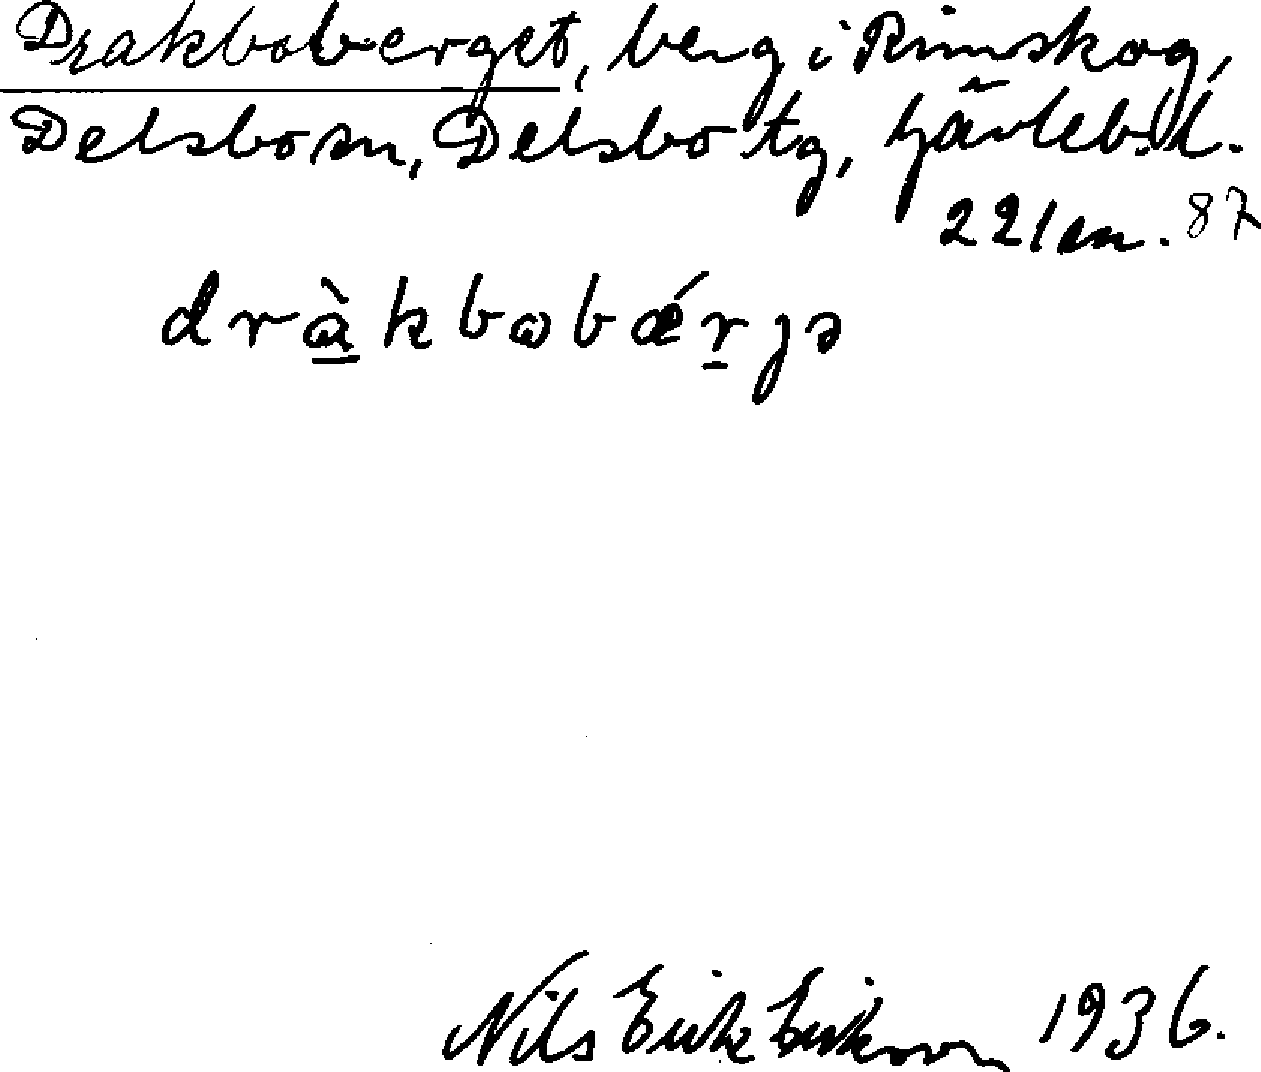 Drakboberget, berg i Rimskog,
Delsbo sn, Delsbo tg, Gävleb. l.
221 m. 87
dràkbobǽrjə
Nils Erik Eriksson 1936.